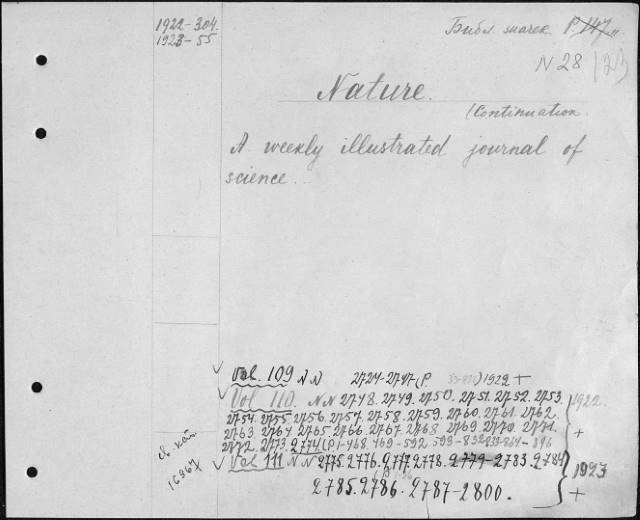 1922-304.
1923-55
Библ. значек P. 147
N 28
Nature.
(Continuation.
A weekly illustrated journal of
science...
Vol. 109 NN 2724-2747 (P. ) 1922 +
Vol 110. NN 2748. 2749. 2750. 2751. 2752. 2753. 1922.
2754. 2755. 2756. 2757. 2758. 2759. 2760. 2761. 2762.
2763. 2764. 2765. 2766. 2767. 2768. 2769. 2770. 2771. +
2772. 2773. 2774 (P. 1-468. 469-592. 593-832
Vol 111 NN 2775. 2776. 2777. 2778. 2779-2783. 2784 1923
2785. 2786. 2787-2800. +
16967